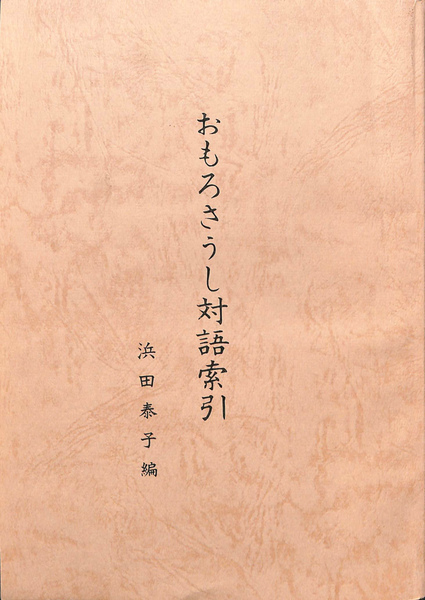 おもろさうし対語索引
浜田泰子編